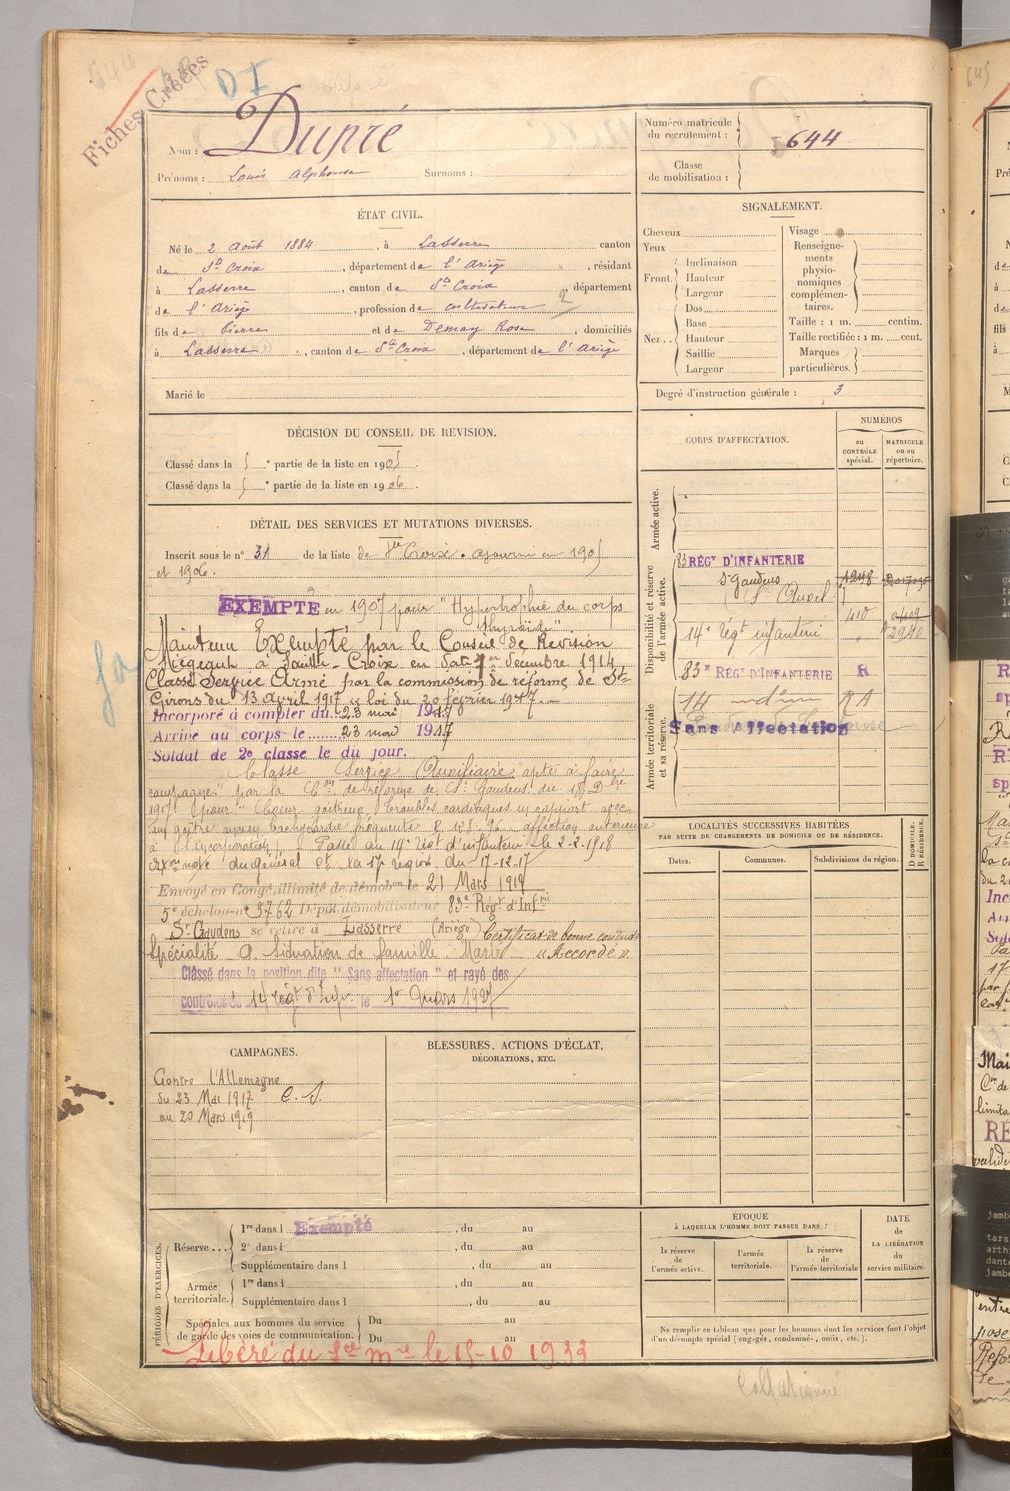 Fiches Créées
D I
Nom : Dupré
Prénoms : Louis Alphonse Surnoms :
Numéro matricule du recrutement : 644
Classe de mobilisation :
ÉTAT CIVIL.
Né le 2 Août 1884, à Lasserre canton
de Ste Croix, département de l'Ariège, résidant
à Lasserre, canton de Ste Croix, département
de l'Ariège, profession de cultivateur
fils de Pierre et de Demay Rose, domiciliés
à Lasserre, canton de Ste Croix, département de l'Ariège
Marié le
SIGNALEMENT.
Cheveux
Yeux
Front. Inclinaison
Hauteur
Largeur
Nez.. Dos
Base
Hauteur
Saillie
Largeur
Visage
Renseignements physionomiques complémentaires.
Taille : 1 m. centim.
Taille rectifiée : 1 m. cent.
Marques particulières.
Degré d'instruction générale : 3
DÉCISION DU CONSEIL DE REVISION.
Classé dans la 5e partie de la liste en 1905.
Classé dans la 5e partie de la liste en 1906.
DÉTAIL DES SERVICES ET MUTATIONS DIVERSES.
Inscrit sous le n° 31 de la liste de Ste Croix. ajourné en 1905
et 1906.
EXEMPTÉ en 1907 pour "Hypertrophie du corps
thyroïde"
Maintenu Exempté par le Conseil de Revision
siégeant à Sainte-Croix en date 7 decembre 1914
Classé Service Armé par la commission de réforme de St-
Girons du 13 avril 1917 loi du 20 février 1917.
Incorporé à compter du 23 mai 1917
Arrivé au corps le 23 mai 1917
Soldat de 2e classe le dit jour.
Classé Service Auxiliaire apte à faire
campagne par la Con de réforme de St Gaudens du
1917 pour Cœur goitreux, troubles cardiaques en rapport avec
un goitre tachycardie fréquente affection antérieure
à l'incorporation. Passé au 14e régt d'infanterie le 2-2-1918
note du général Ct la 17e région du 17-12-17
Envoyé en Congé illimité de démobon le 21 Mars 1919
5e échelon n° 3762 Dépôt démobilisateur 83e Régt d'Infrie
St Gaudens se retire à Lasserre (Ariège) Certificat de bonne conduite
Spécialité Situation de famille : Marié "Accordé"
Classé dans la position dite "Sans affectation" et rayé des
contrôles du 14 régt d'Infie le 1er Mars 1927
CORPS D'AFFECTATION.
NUMÉROS
au CONTRÔLE spécial.
MATRICULE ou au répertoire.
Armée active.
Disponibilité et réserve de l'armée active.
83 RÉGt D'INFANTERIE
St Gaudens 1248
(Sce Auxil.)
14e régt infanterie 410
83e RÉGt D'INFANTERIE R
14 d'Inf RA
Armée territoriale et sa réserve.
Sans Affectation
LOCALITÉS SUCCESSIVES HABITÉES
PAR SUITE DE CHANGEMENTS DE DOMICILE OU DE RÉSIDENCE.
Dates.
Communes.
Subdivisions de région.
D DOMICILE. R RÉSIDENCE.
CAMPAGNES.
Contre l'Allemagne
du 23 Mai 1917 C. S.
au 20 Mars 1919
BLESSURES, ACTIONS D'ÉCLAT,
DÉCORATIONS, ETC.
PÉRIODES D'EXERCICES.
Réserve ... 1re dans l Exempté, du au
2e dans l, du au
Supplémentaire dans l, du au
Armée territoriale. 1re dans l, du au
Supplémentaire dans l, du au
Spéciales aux hommes du service de garde des voies de communication. Du au
Du au
Libéré du Sce mre le 15-10 1933
ÉPOQUE
À LAQUELLE L'HOMME DOIT PASSER DANS :
la réserve de l'armée active.
l'armée territoriale.
la réserve de l'armée territoriale
DATE de LA LIBÉRATION du service militaire.
Ne remplir ce tableau que pour les hommes dont les services font l'objet
d'un décompte spécial (engagés, condamnés, omis, etc.).
Collationné